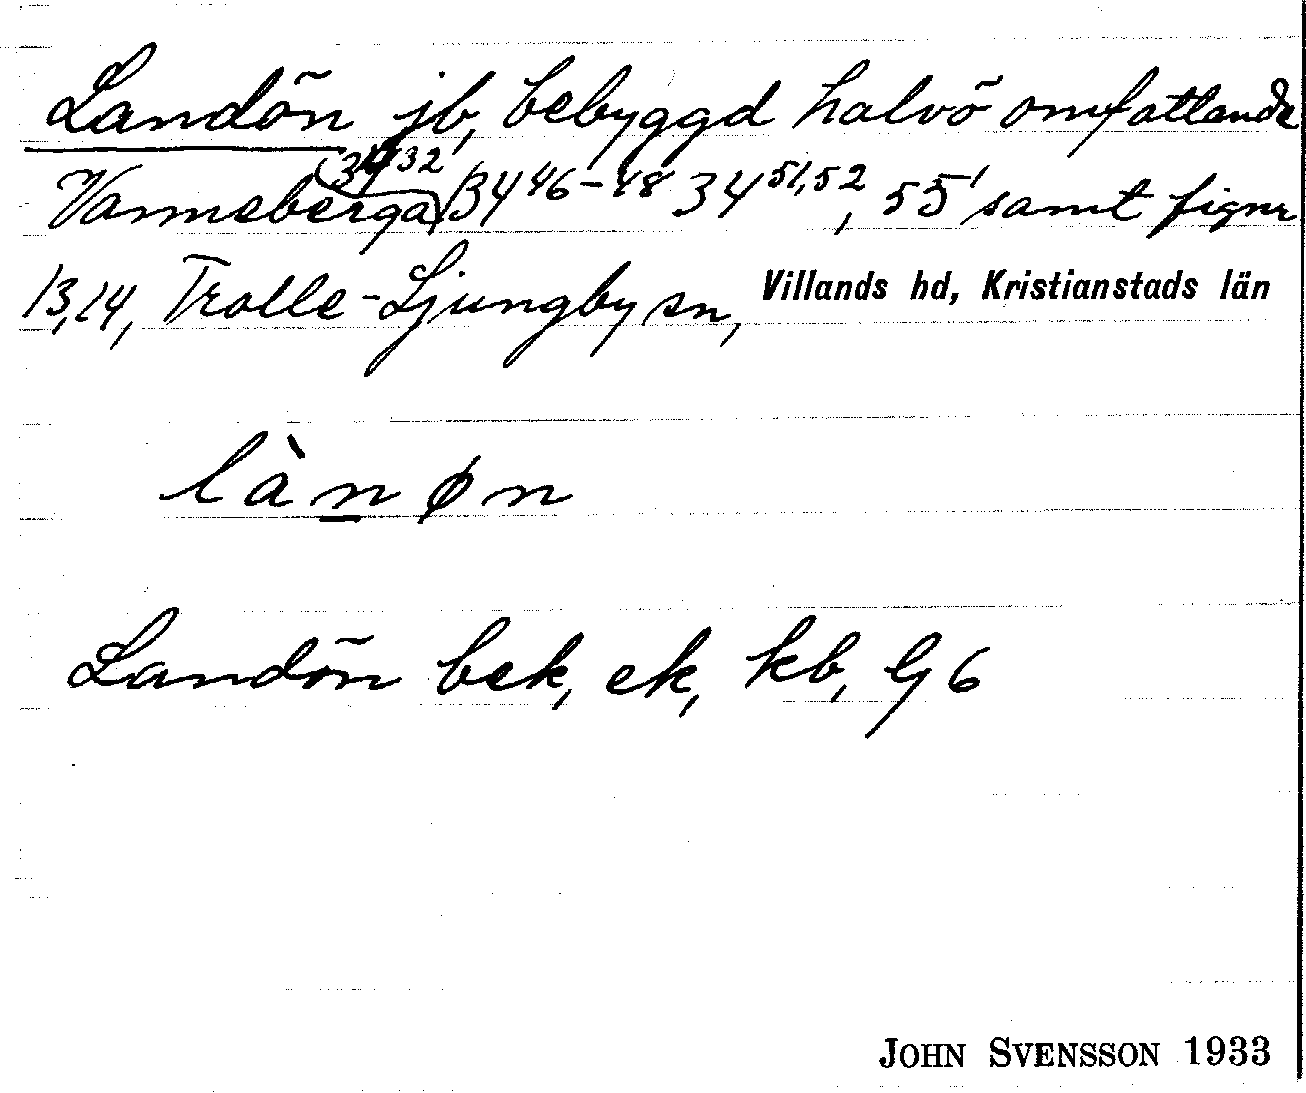 Landön jb, bebyggd halvö omfattande
Vanneberga (34³²) 34⁴⁶⁻⁴⁸ 34⁵¹,⁵², 55¹ samt fignr
13,14, Trolle-Ljungby sn, Villands hd, Kristianstads län
lànøn
Landön bek, ek, kb, G6
JOHN SVENSSON 1933